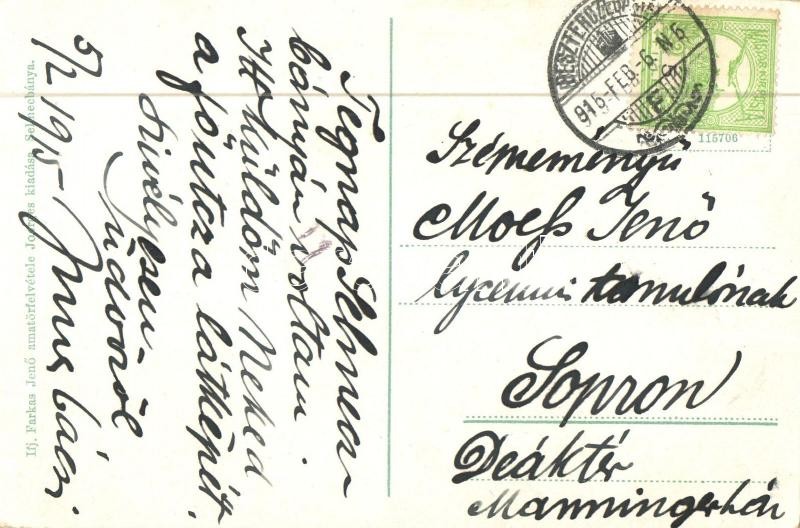 Tegnap Selmecz-
bányán voltam.
Itt küldöm Neked
a főutcza látképét.
Szivélyesen
üdvözöl
5/2 1915 bácsi
Ifj. Farkas Jenő amatőrfelvétele Joerges kiadása Selmecbánya.
BESZTERCZEBÁNYA
915 FEB.-6. N6
115706
Jenő
lyceumi tanulónak
Sopron
Deáktér
Manningerház